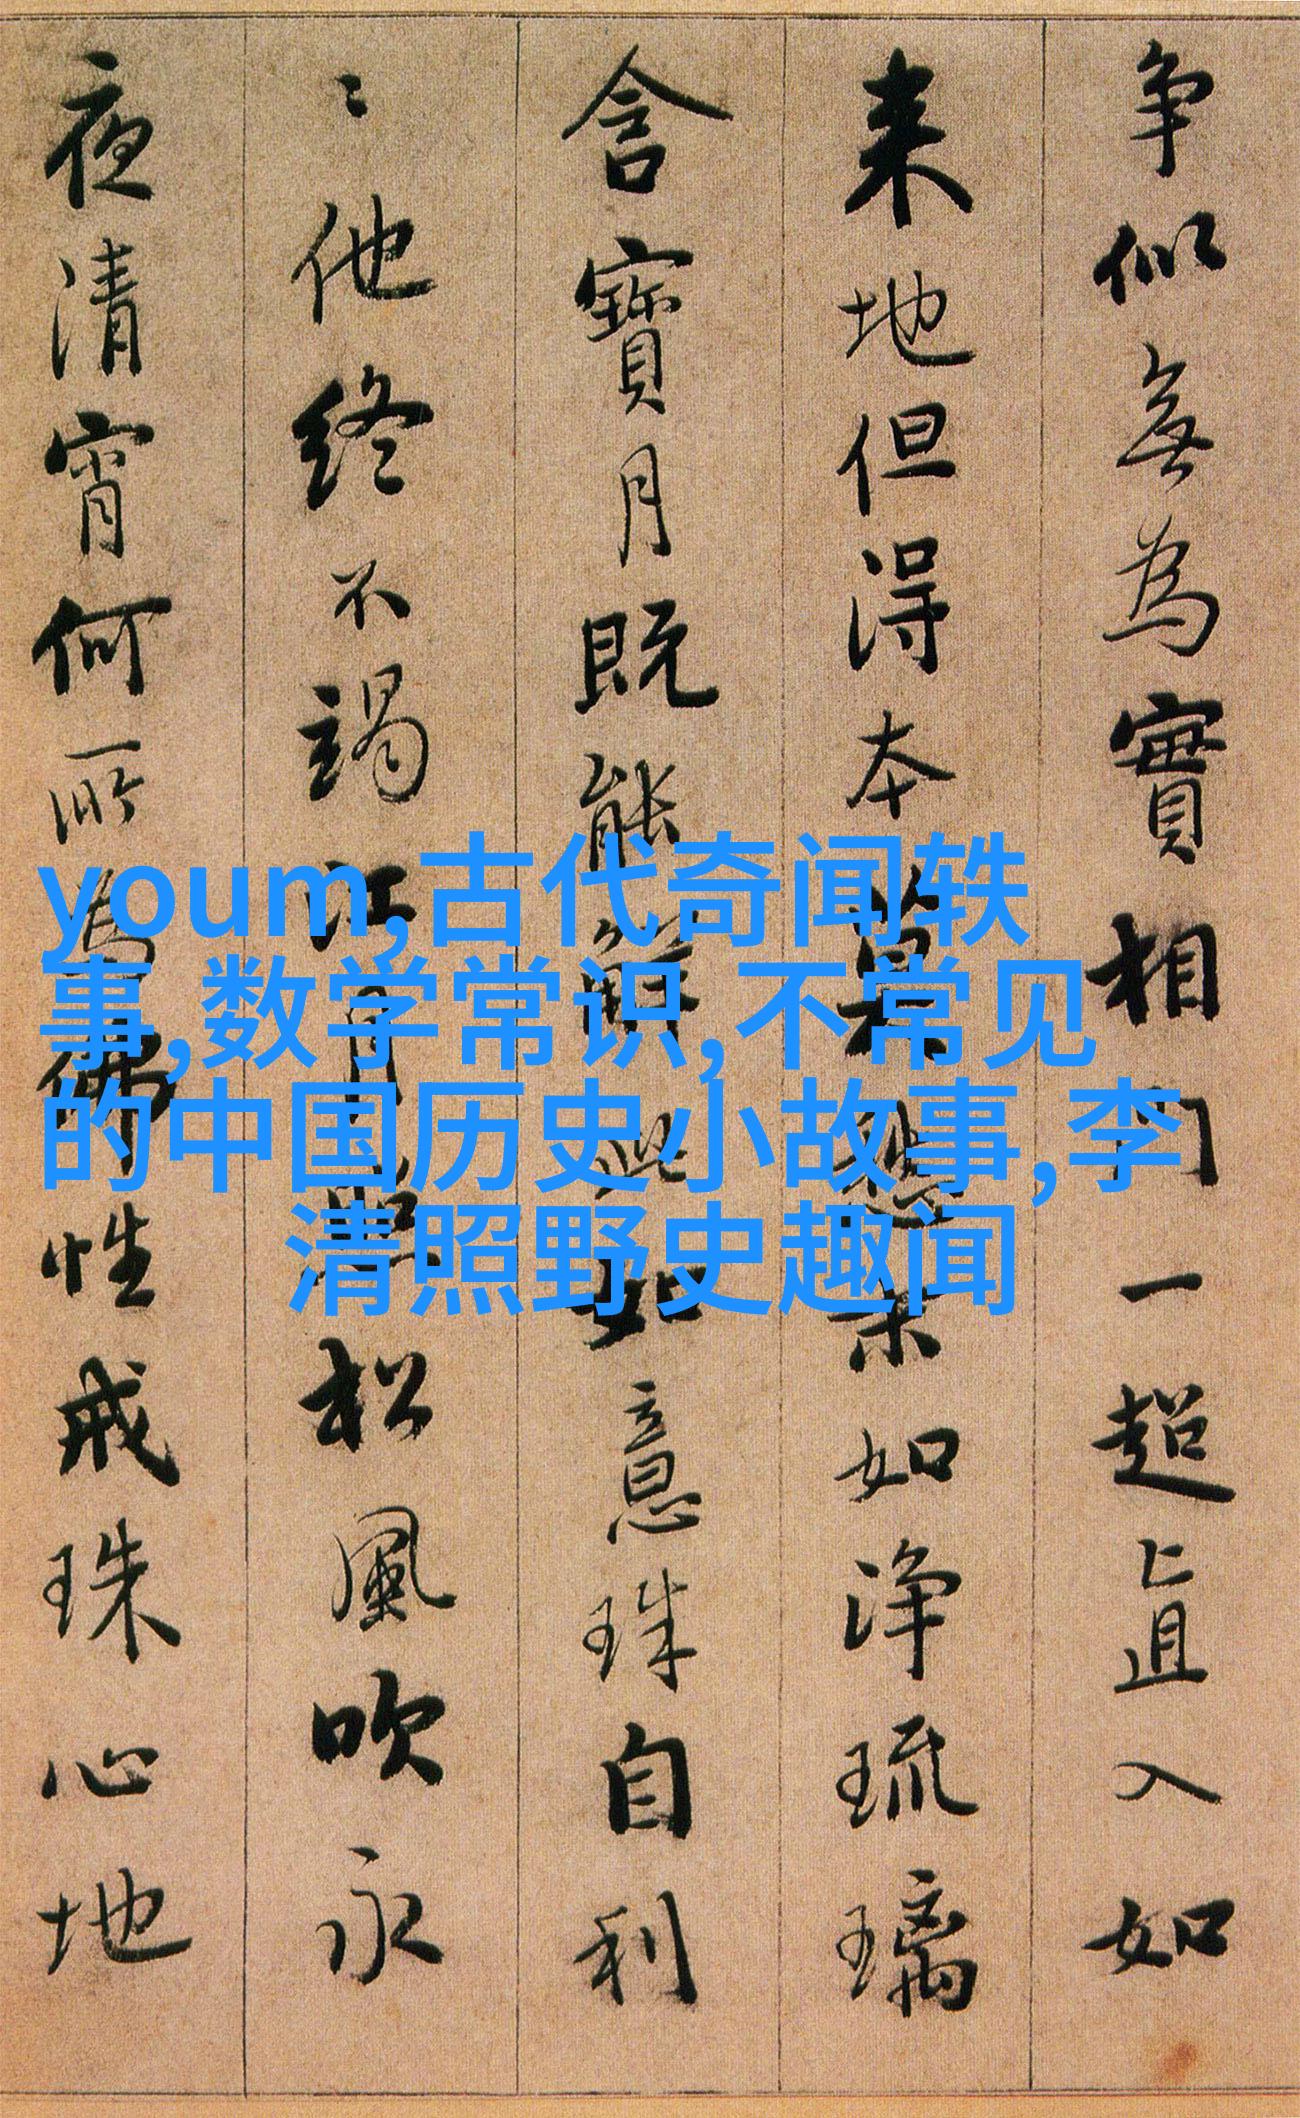 争似無為實相門一超直入如
来地但得本莫愁末如淨琉璃
含寶月既能解此如意珠自利
〻他終不竭江月照松風吹永
夜清宵何所為佛性戒珠心地
youm,古代奇闻轶
事,数学常识,不常见
的中国历史小故事,李
清照野史趣闻